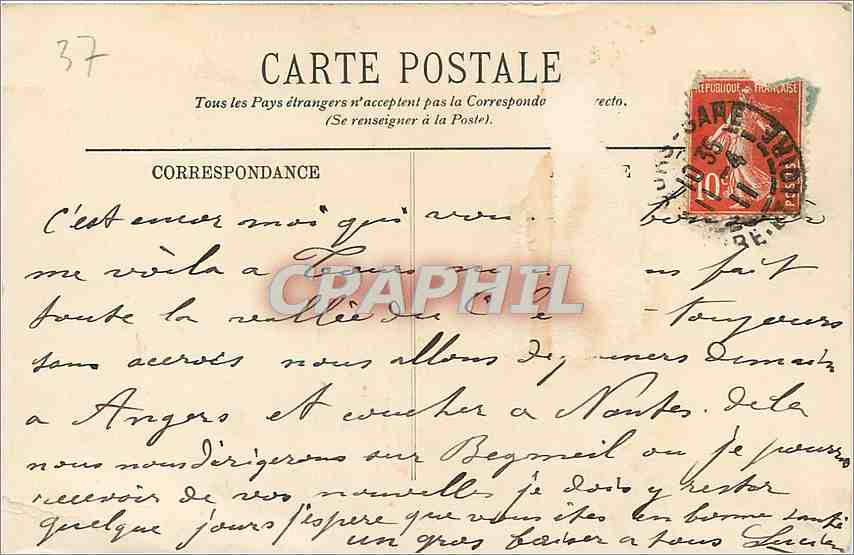 37
CARTE POSTALE
Tous les Pays étrangers n'acceptent pas la Corresponda recto.
(Se renseigner à la Poste).
CORRESPONDANCE E
REPUBLIQUE FRANÇAISE
10c POSTES
GARE
10 35
11 - 4
11
c'est encor moi qui vou
me voila a Tours fait
toute la vallée du toujours
sans acrois nous allons demain
a Angers et coucher a Nantes. de la
nous nous dirigerons sur Begmeil ou je pourra
recevoir de vos nouvelles je dois y rester
quelque jours j'espere que vous ites en bonne santé
un gros baiser a tous Lucien
CRAPHIL